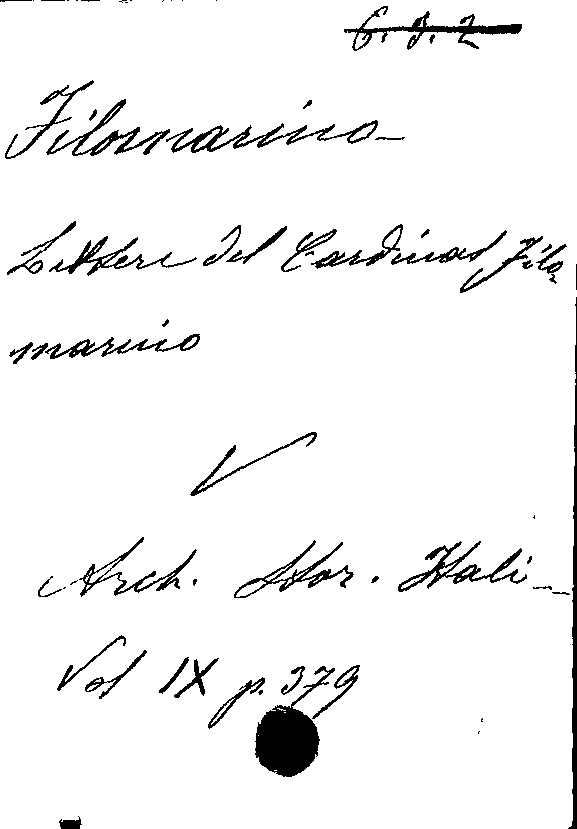 6. 3. 2
Filomarino
Lettere del Cardinal Filo
marino
V
Arch. Stor. Itali
Vol IX p. 379